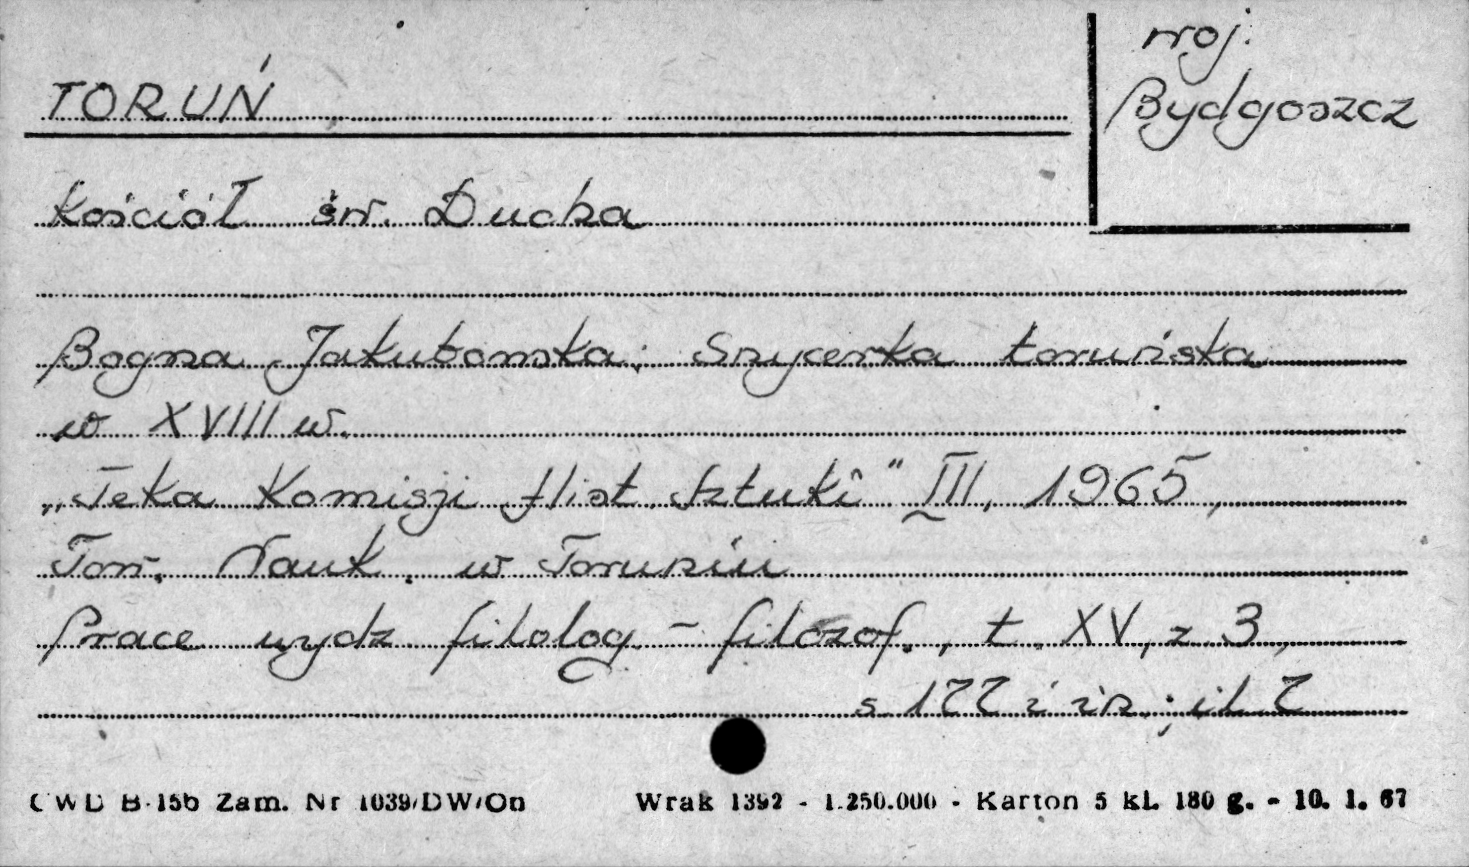 TORUŃ
woj.
Bydgoszcz
Kościół św. Ducha
Bogna Jakubowska; Snycerka toruńska
w XVIII w.
„Teka Komisji Hist. Sztuki" III, 1965,
Tow. Nauk. w Toruniu
Prace wydz filolog - filozof., t. XV, z 3,
s 177 i in.; il 7
CWD B-15b Zam. Nr 1039/DW/On Wrak 1392 - 1.250.000 - Karton 5 kl. 180 g. - 10. 1. 67